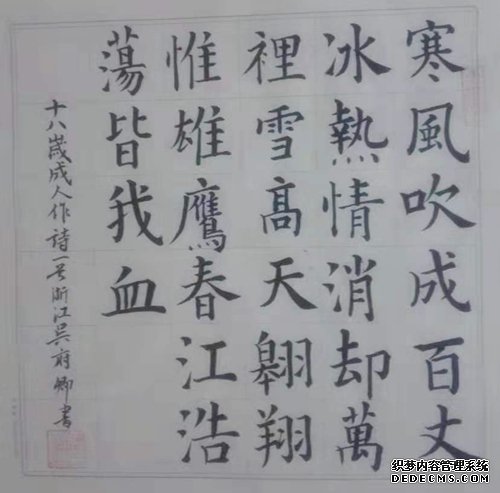 寒風吹成百丈
冰熱情消却萬
裡雪高天翱翔
惟雄鷹春江浩
蕩皆我血
十八嵗成人作詩一首浙江吳府卿書
织梦内容管理系统
DEDECMS.COM